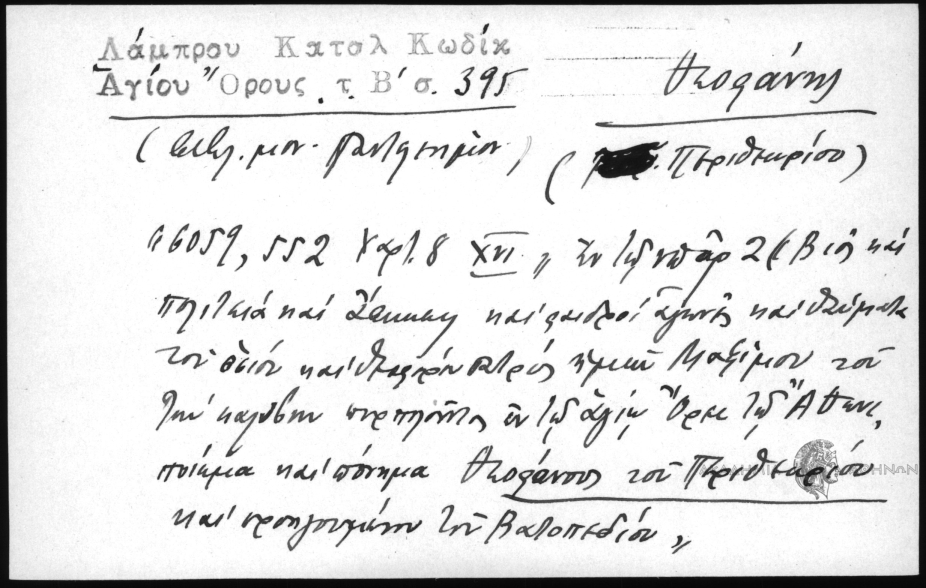 Λάμπρου Καταλ Κωδίκ
Ἁγίου Ὄρους. τ. Β' σ. 395
Θεοφάνης
(Βιβλ. μον. Παντελεήμον)
( Περιθεωρίου)
"6059, 552 χαρτ. 8 XVI „ Ἐν τῷ ὑπ' ἀρ 2 (Βίος καί
πολιτεία καί ἄσκησις καί φαιδροί ἀγῶνες καί θαύματα
τοῦ ὁσίου καί θεοφόρου πατρός ἡμῶν Μαξίμου τοῦ
τήν καλύβην πυρπολοῦντος ἐν τῷ ἁγίῳ Ὄρει τῷ Ἄθωνι,
ποίημα καί πόνημα Θεοφάνους τοῦ Περιθεωρίου
καί προηγουμένου τοῦ Βατοπεδίου „